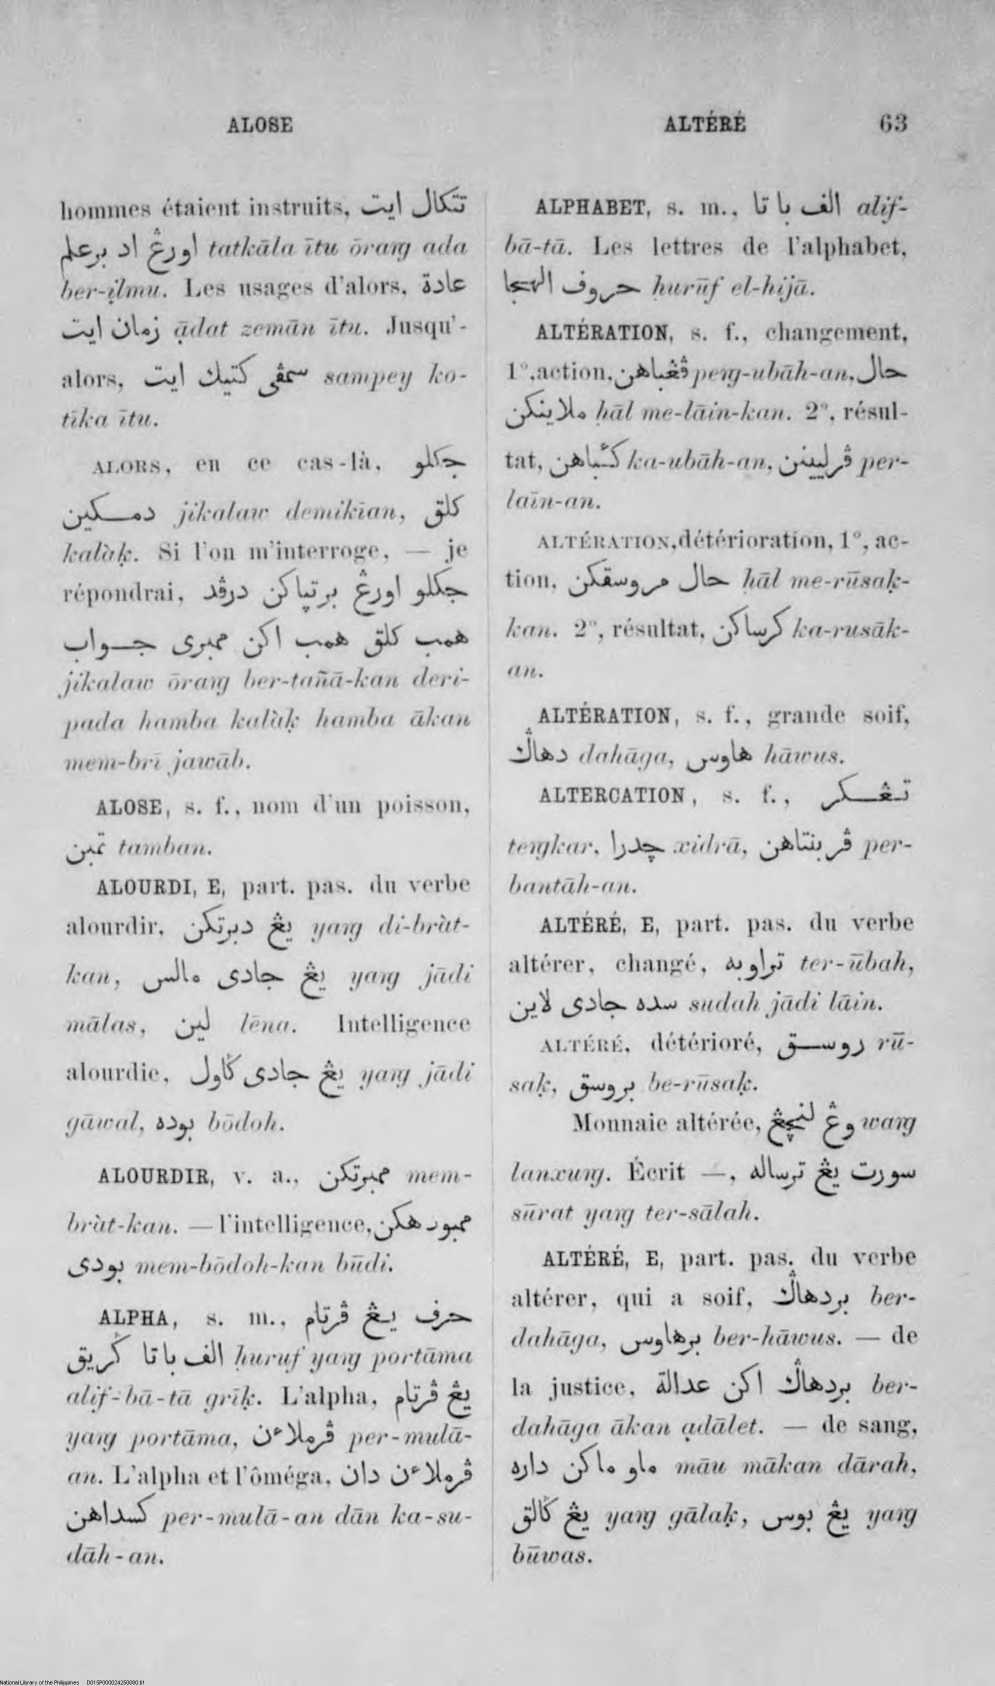 ALOSE
ALTÉRÉ 63
hommes étaient instruits, تتكال ايت
اورڠ اد برعلم tatkāla ītu ōraŋ ada
ber-ilmu. Les usages d'alors, عادة
زمان ايت ạ̄dat zemān ītu. Jusqu'-
alors, سمڤى كتيك ايت sampey ko-
tīka ītu.
ALORS, en ce cas-là, جكلو
دمكين jikalaw demikīan, كلق
kalàḳ. Si l'on m'interroge, — je
répondrai, جكلو اورڠ برتڽاكن درڤد
همب كلق همب اكن ممبرى جواب
jikalaw ōraŋ ber-tañā-kan deri-
pada hamba kalàḳ hamba ākan
mem-brī jawāb.
ALOSE, s. f., nom d'un poisson,
تمبن tamban.
ALOURDI, E, part. pas. du verbe
alourdir, يڠ دبرتكن yaŋ di-bràt-
kan, يڠ جادى مالس yaŋ jādi
mālas, لين lēna. Intelligence
alourdie, يڠ جادى ڬاول yaŋ jādi
gāwal, بوده bōdoh.
ALOURDIR, v. a., ممبرتكن mem-
bràt-kan. — l'intelligence, ممبودهكن
بودى mem-bōdoh-kan būdi.
ALPHA, s. m., حرف يڠ ڤرتام
الف باتا ڬريق ḥuruf yaŋ portāma
alif-bā-tā grīḳ. L'alpha, يڠ ڤرتام
yaŋ portāma, ڤرملاءن per-mulā-
an. L'alpha et l'ôméga, ڤرملاءن دان
كسداهن per-mulā-an dān ka-su-
dāh-an.
ALPHABET, s. m., الف با تا alif-
bā-tā. Les lettres de l'alphabet,
حروف الهجا ḥurūf el-hijā.
ALTÉRATION, s. f., changement,
1°, action, ڤڠباهن peŋ-ubāh-an, حال
ملاينكن hāl me-lāin-kan. 2°, résul-
tat, كئباهن ka-ubāh-an, ڤرليينن per-
laīn-an.
ALTÉRATION, détérioration, 1°, ac-
tion, حال مروسقكن ḥāl me-rūsaḳ-
kan. 2°, résultat, كرساكن ka-rusāk-
an.
ALTÉRATION, s. f., grande soif,
دهاڬ dahāga, هاوس hāwus.
ALTERCATION, s. f., تڠكر
teŋkar, چدرا xidrā, ڤربنتاهن per-
bantāh-an.
ALTÉRÉ, E, part. pas. du verbe
altérer, changé, تراوبه ter-ūbah,
سده جادى لاين sudah jādi lāin.
ALTÉRÉ, détérioré, روسق rū-
saḳ, بروسق be-rūsaḳ.
Monnaie altérée, وڠ لنچڠ waŋ
lanxuŋ. Écrit —, سورت يڠ ترساله
sūrat yaŋ ter-sālah.
ALTÉRÉ, E, part. pas. du verbe
altérer, qui a soif, بردهاڬ ber-
dahāga, برهاوس ber-hāwus. — de
la justice, بردهاڬ اكن عدالة ber-
dahāga ākan ạdālet. — de sang,
ماو ماكن داره māu mākan dārah,
يڠ ڬالق yaŋ gālaḳ, يڠ بوس yaŋ
būwas.
National Library of the Philippines